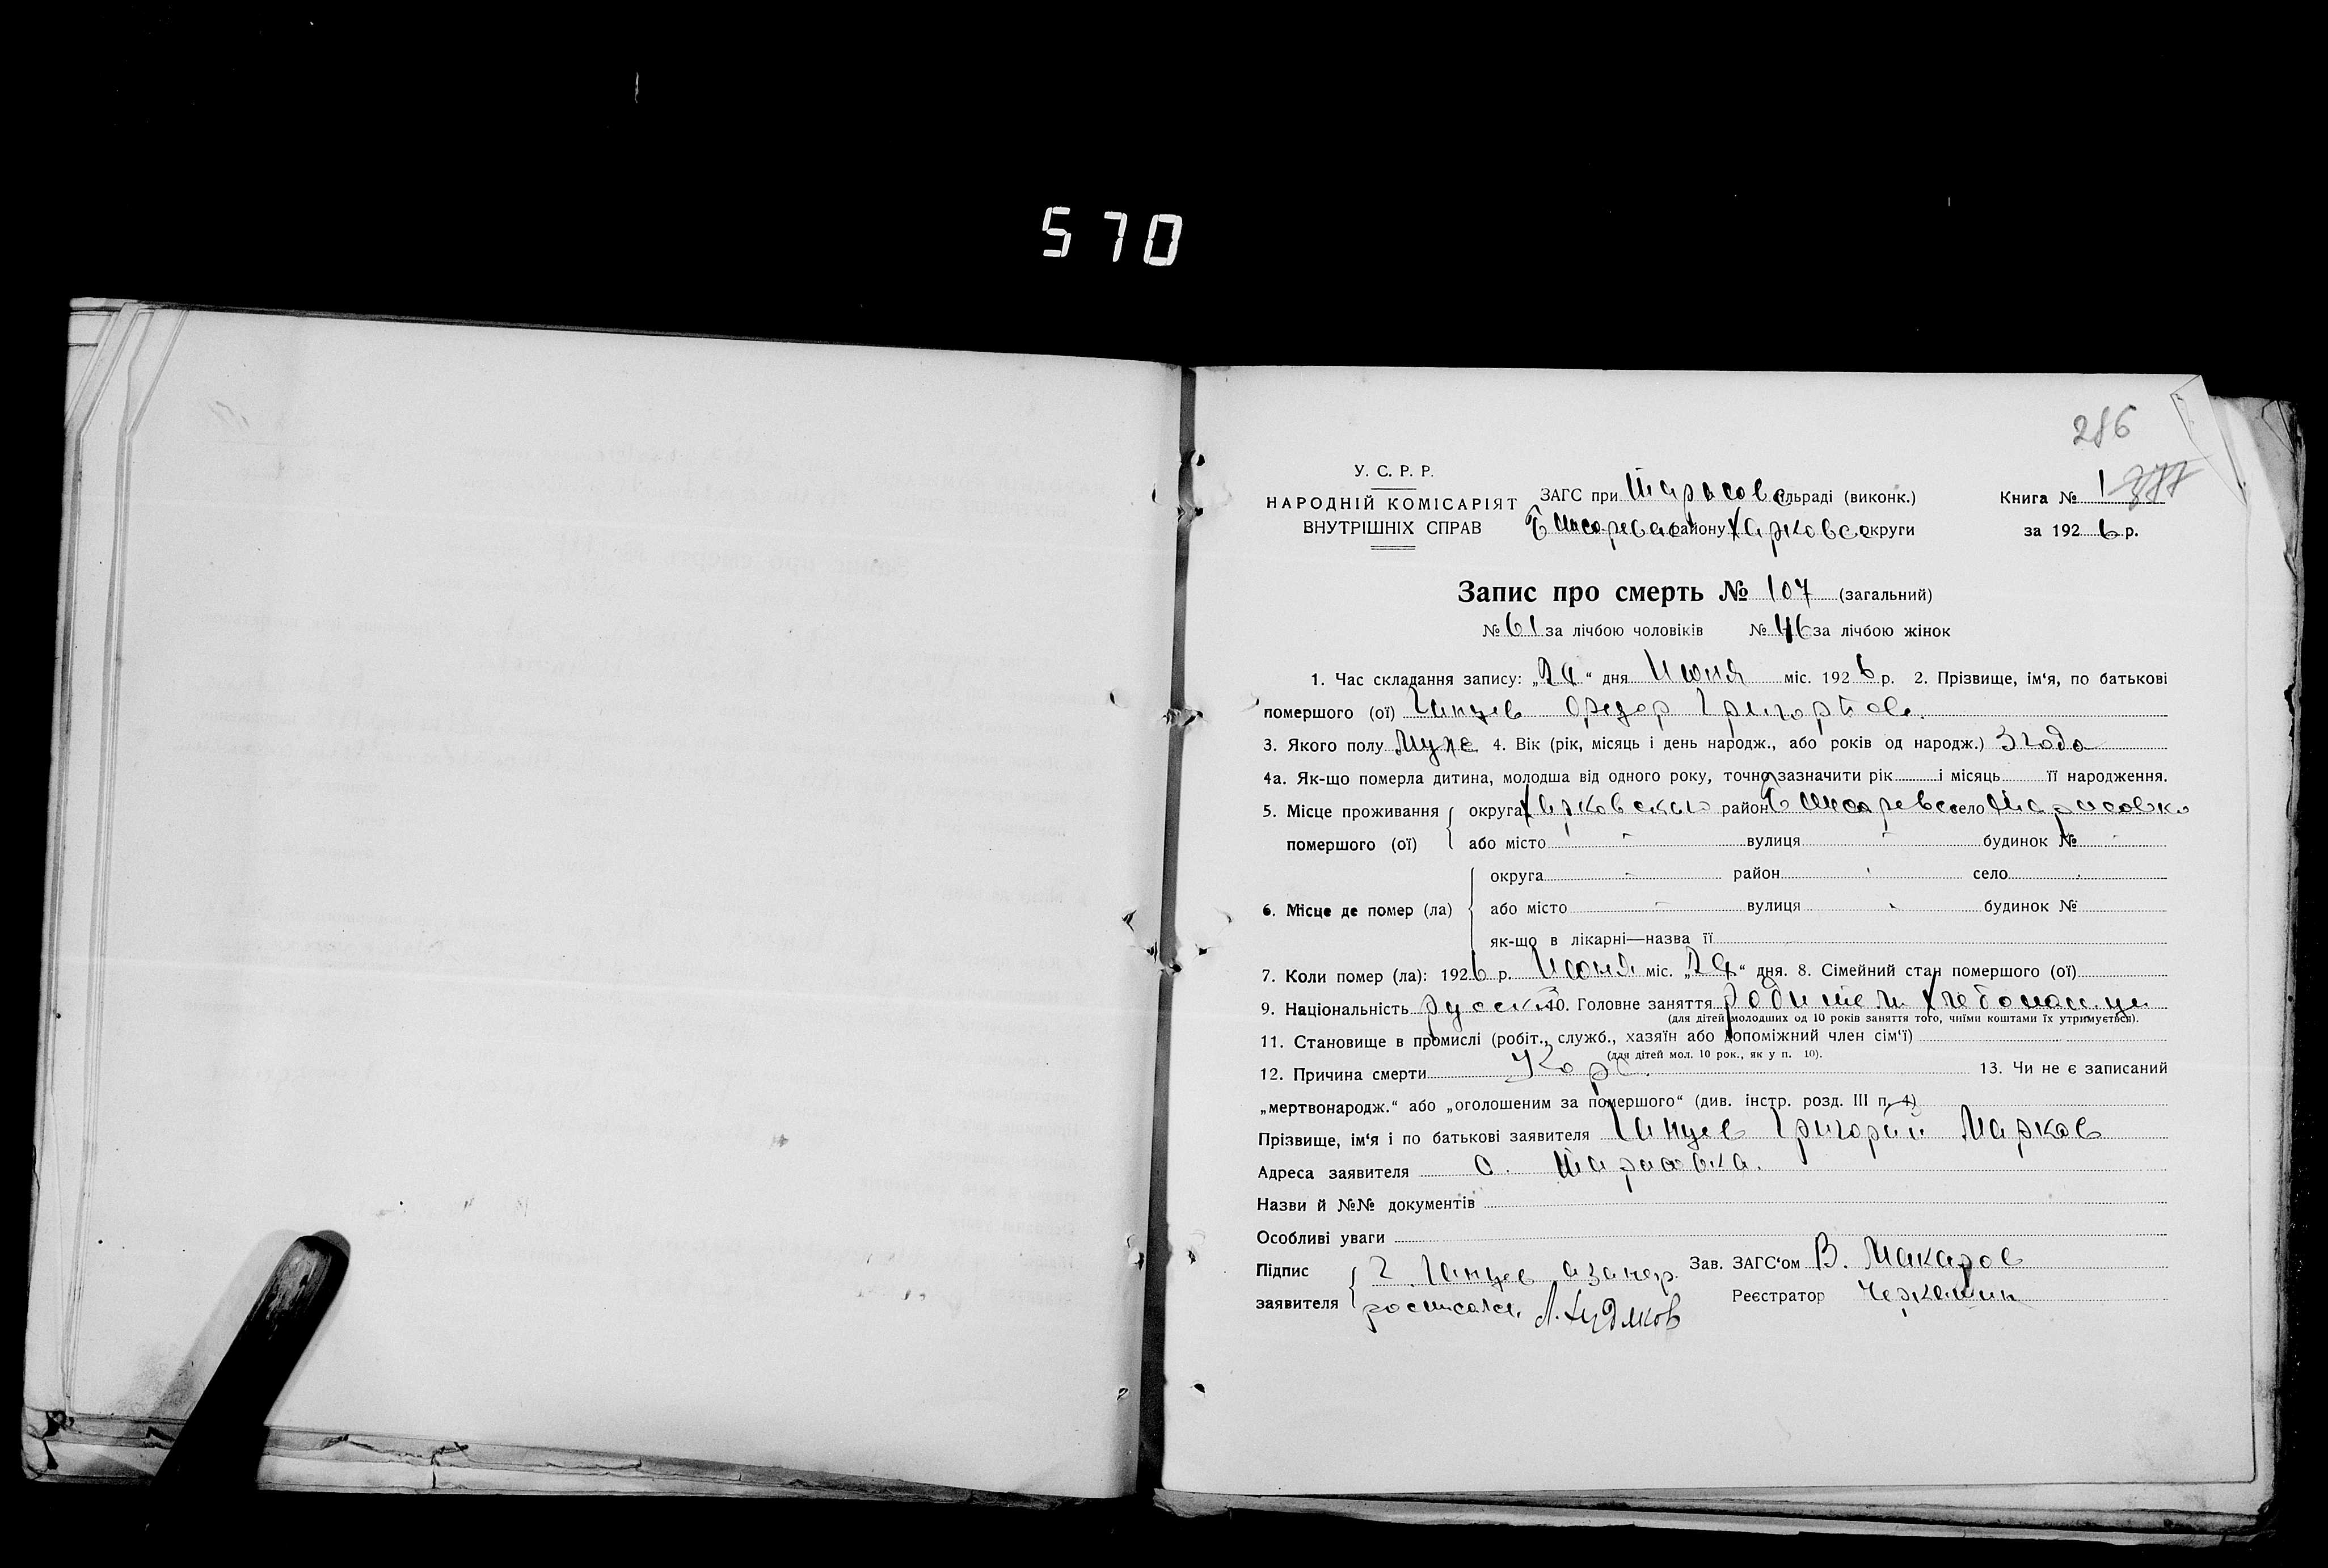 570
286
У. С. Р. Р.
НАРОДНІЙ КОМІСАРІЯТ
ВНУТРІШНІХ СПРАВ
ЗАГС при Тарасовс сільраді (виконк.)
району Харковсо округи
Книга № 1
за 1926 р.
Запис про смерть № 107 (загальний)
№ 61 за лічбою чоловіків № 46 за лічбою жінок
1. Час складання запису: „24“ дня Июня міс. 1926 р. 2. Прізвище, ім‘я, по батькові
помершого (ої) Ганцев Федор Григорьев.
3. Якого полу Муже 4. Вік (рік, місяць і день народж., або років од народж.) 3 года
4а. Як-що померла дитина, молодша від одного року, точно зазначити рік і місяць її народження.
5. Місце проживання помершого (ої) округа Харковского район село Тарасовка
або місто - вулиця - будинок № -
6. Місце де помер (ла) округа - район - село -
або місто - вулиця - будинок №
як-що в лікарні—назва її
7. Коли помер (ла): 1926 р. Июня міс. „24“ дня. 8. Сімейний стан помершого (ої)
9. Національність русский 10. Головне заняття родители хлебопашци
(для дітей молодших од 10 років заняття того, чиїми коштами їх утримується).
11. Становище в промислі (робіт., служб., хазяїн або допоміжний член сім‘ї)
(для дітей мол. 10 рок., як у п. 10).
12. Причина смерти Корь. 13. Чи не є записаний
„мертвонародж.“ або „оголошеним за помершого“ (див. інстр. розд. III п. 4)
Прізвище, ім‘я і по батькові заявителя Ганцев Григорий Марков
Адреса заявителя с. Тарасовка.
Назви й №№ документів
Особливі уваги
Підпис заявителя Г. Ганцев а за нер.
росписался Л. Худяков
Зав. ЗАГС‘ом В. Макаров
Реєстратор Черкашин